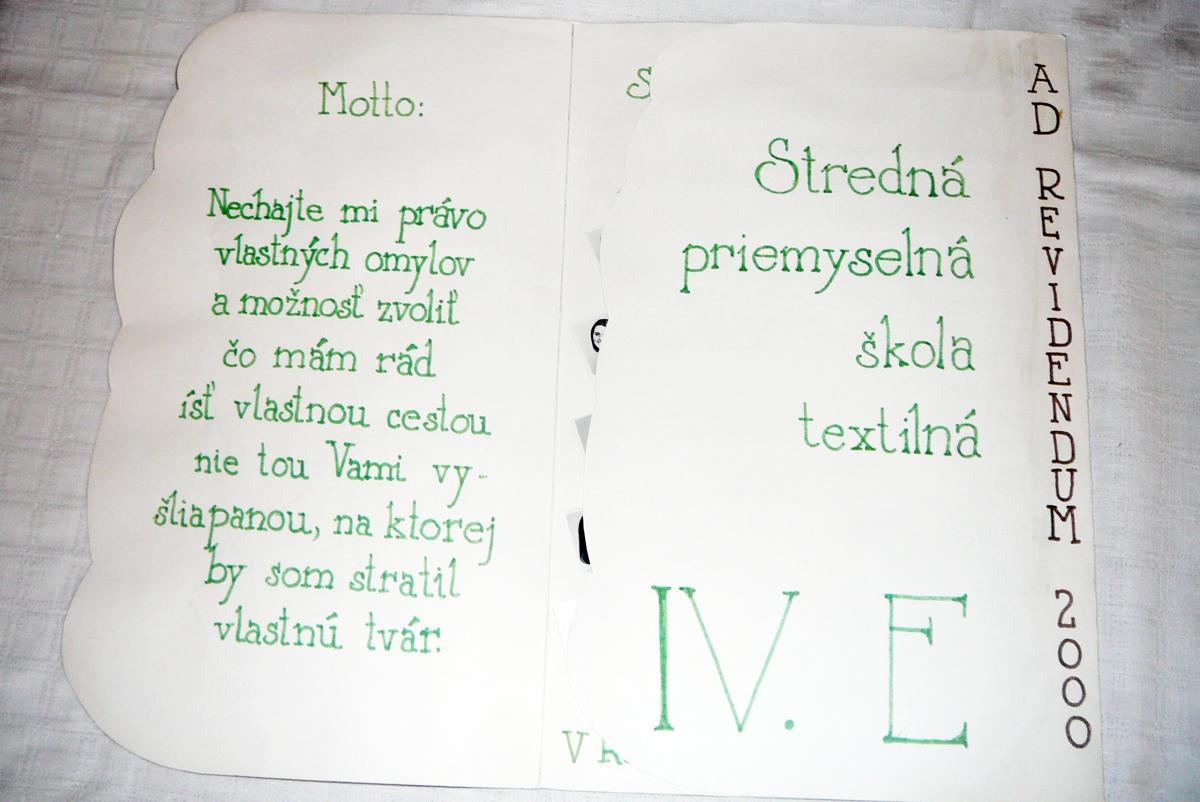 Motto:
Nechajte mi právo
vlastných omylov
a možnosť zvoliť
čo mám rád
ísť vlastnou cestou
nie tou Vami vy-
šliapanou, na ktorej
by som stratil
vlastnú tvár.
S
V
Stredná
priemyselná
škola
textilná
IV. E
AD REVIDENDUM 2000